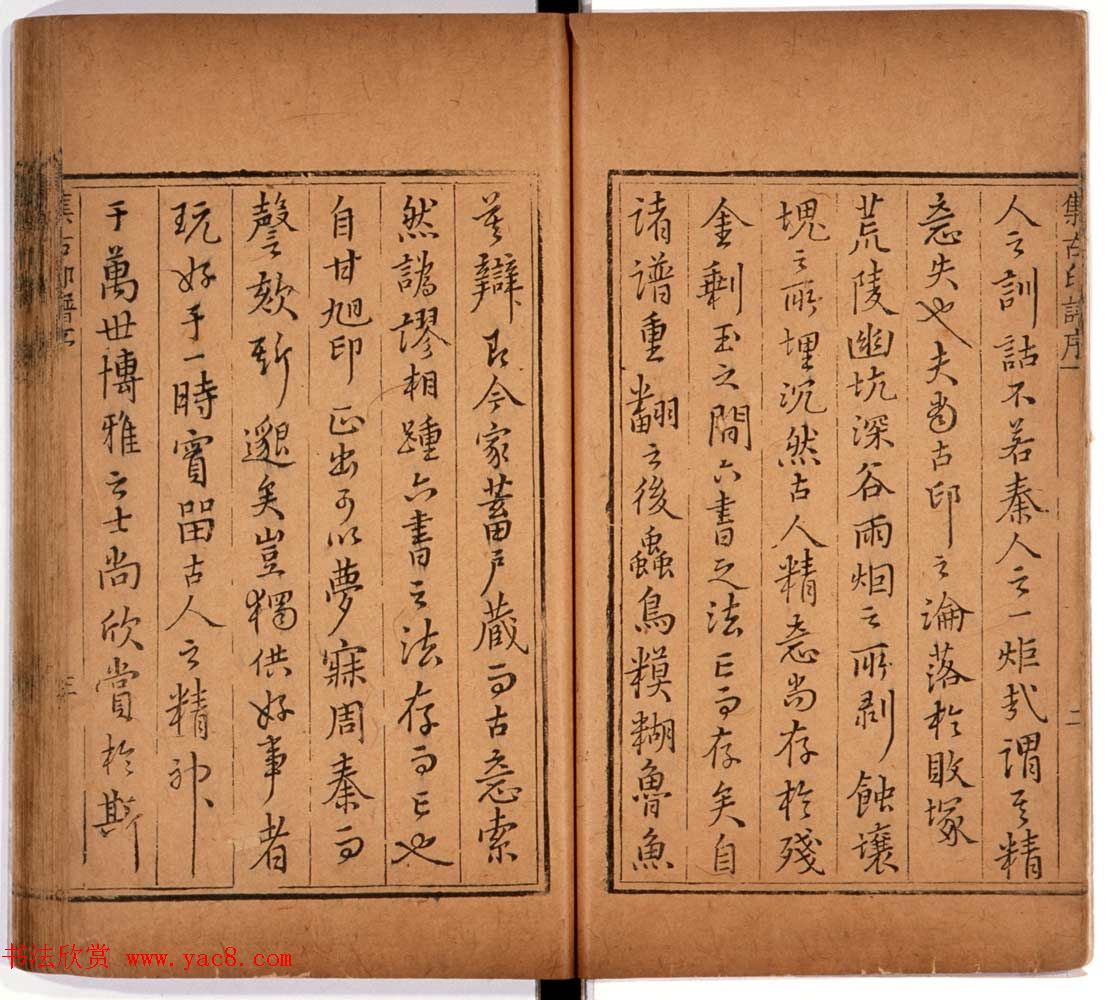 集古印譜序一
二
人之訓詁不若秦人之一炬哉謂其精
意失也夫當古印之淪落於敗塚
荒陵幽坑深谷雨烟之所剥蝕壤
塊之所埋沉然古人精意尚存於殘
金剩玉之間六書之法亡而存矣自
諸譜重翻之後蟲鳥糢糊魯魚
莫辯即今家蓄戶藏而古意索
然譌謬相踵六書之法存而亡也
自甘旭印正出可以夢寐周秦而
謦欬斯邈矣豈獨供好事者
玩好于一時實畱古人之精神
于萬世博雅之士尚欣賞於斯
书法欣赏 www.yac8.com